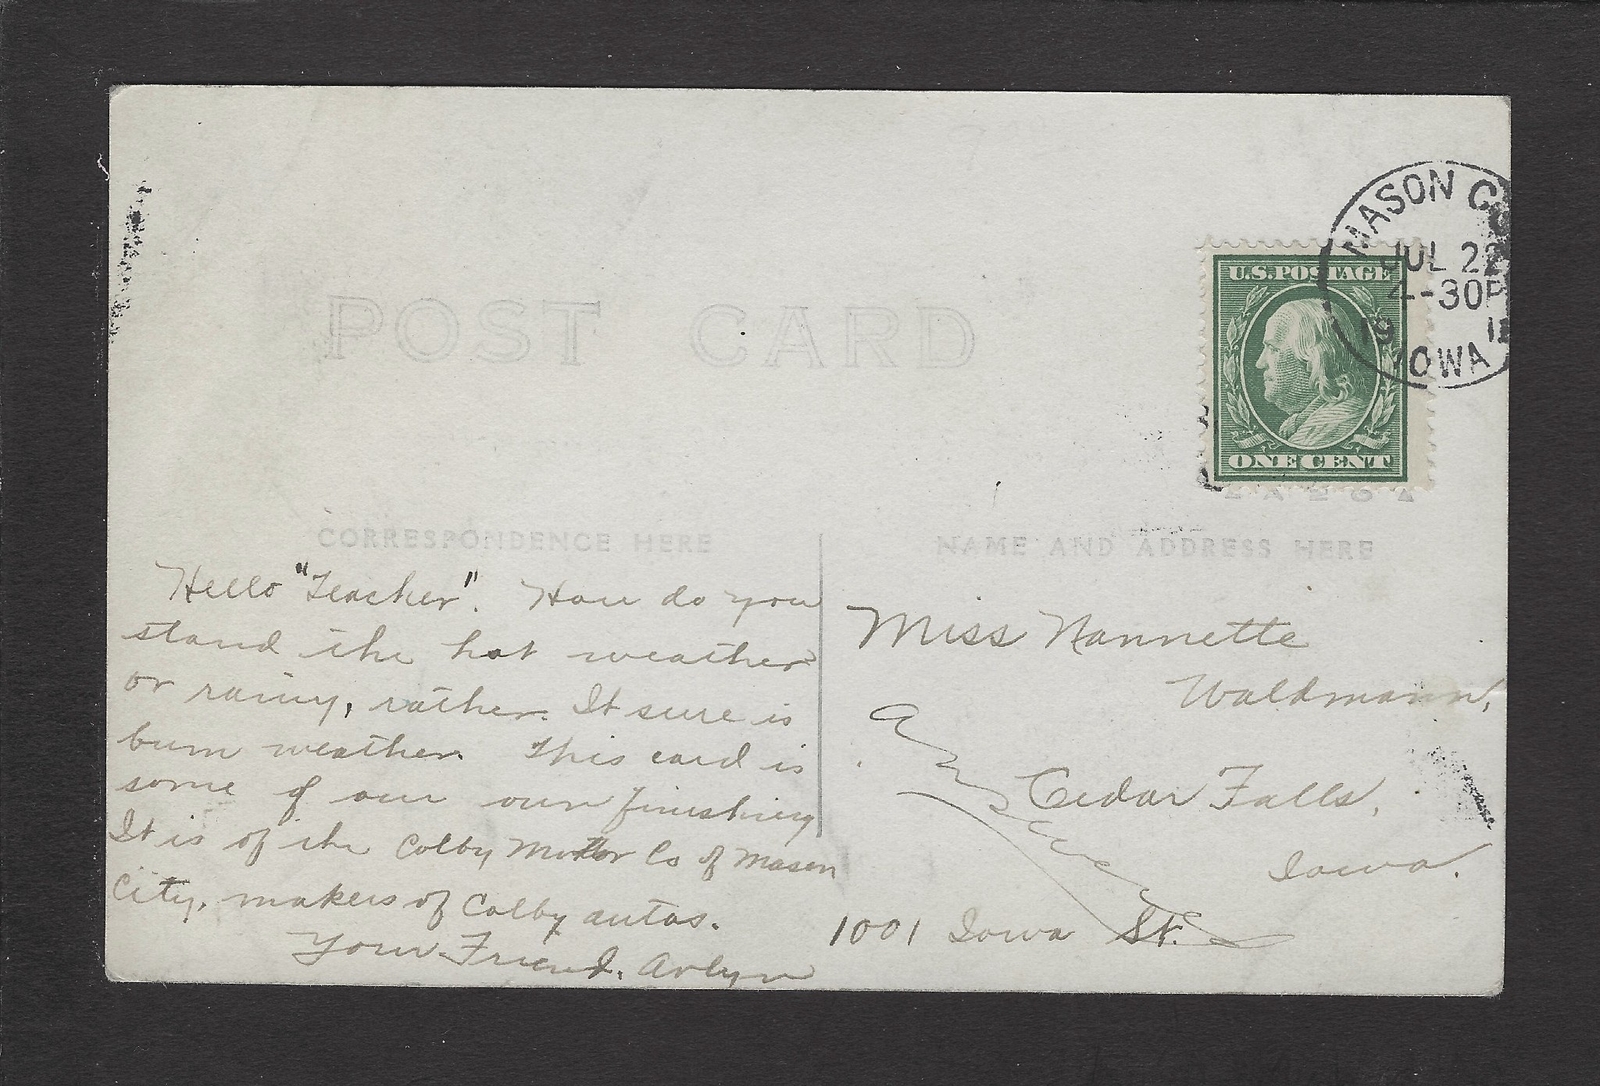 POST CARD
MASON C
JUL 22
4-30P
19 11
IOWA
U.S.POSTAGE
ONE CENT
CORRESPONDENCE HERE
NAME AND ADDRESS HERE
Hello "Teacher". How do you
stand the hot weather
or rainy, rather. It sure is
bum weather. This card is
some of our own finishing
It is of the Colby Motor Co of Mason
City, makers of Colby autos.
Your Friend, Arlyn
Miss Nannette
Waldmann,
Cedar Falls,
Iowa.
1001 Iowa St.
Answer